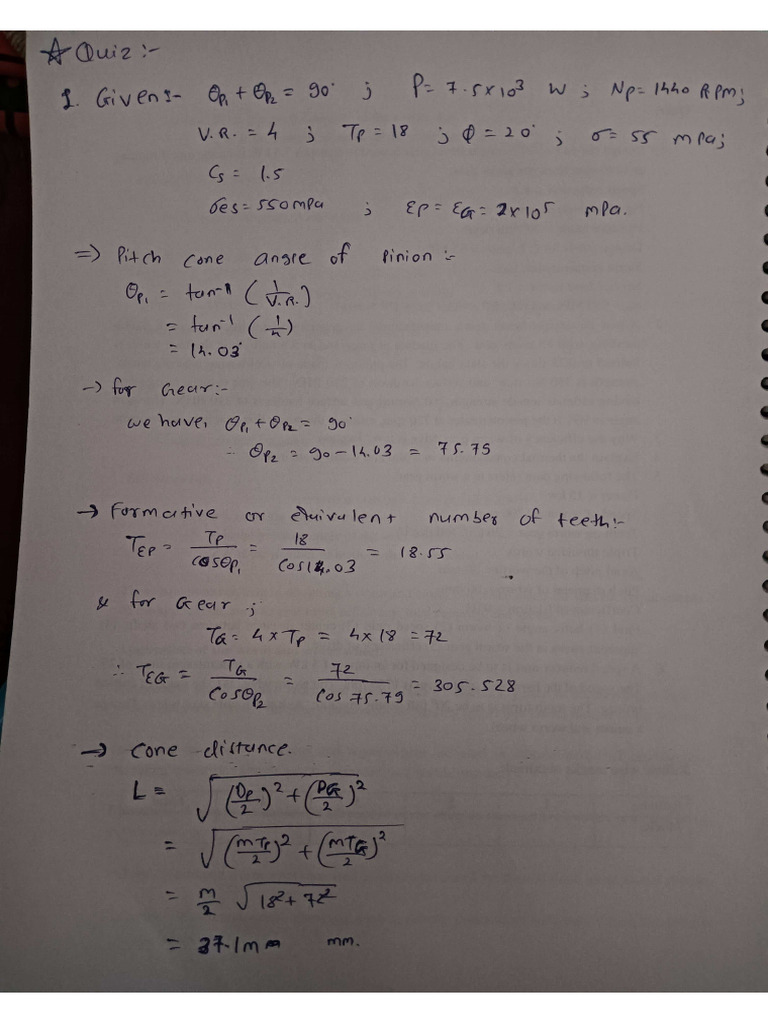 ☆ Quiz :-
1. Given :- θP1 + θP2 = 90° ; P = 7.5×10³ W ; NP = 1440 RPm;
V.R. = 4 ; TP = 18 ; φ = 20° ; σ = 55 mPa;
Cs = 1.5
σes = 550 mPa ; EP = EG = 2×10⁵ mPa.
=> Pitch cone angle of Pinion :-
θP1 = tan⁻¹ (1/V.R.)
= tan⁻¹ (1/4)
= 14.03°
→ for Gear :-
we have, θP1 + θP2 = 90°
∴ θP2 = 90 - 14.03 = 75.79
→ Formative or equivalent number of teeth :-
TEP = TP/cosθP1 = 18/cos14.03 = 18.55
& for Gear ;
TG = 4 × TP = 4 × 18 = 72
∴ TEG = TG/cosθP2 = 72/cos 75.79 = 305.528
→ Cone distance.
L = √((DP/2)² + (DG/2)²)
= √((mTP/2)² + (mTG/2)²)
= m/2 √(18² + 72²)
= 37.1m mm.